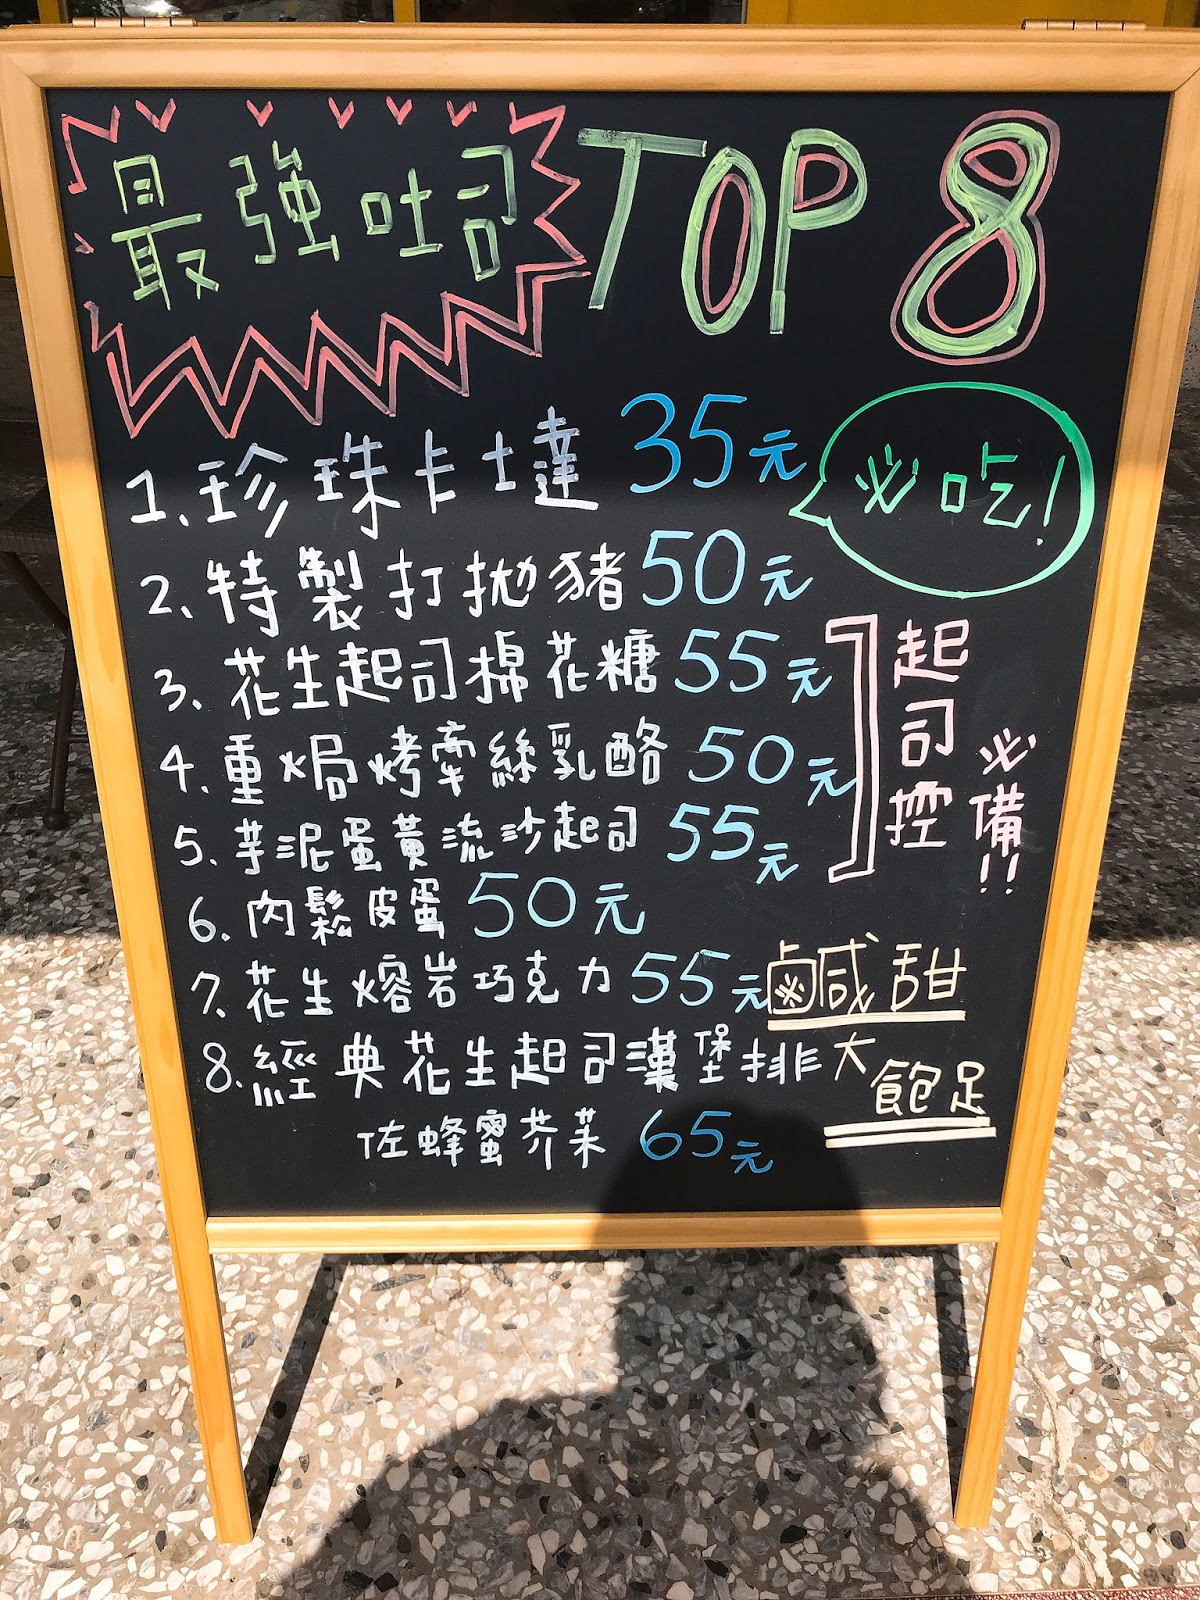 最強吐司 TOP 8
1、珍珠卡士達 35元
必吃!
2、特製打拋豬 50元
3、花生起司棉花糖 55元
4、重焗烤牽絲乳酪 50元
5、芋泥蛋黃流沙起司 55元
起司控
必備!!
6、肉鬆皮蛋 50元
7、花生熔岩巧克力 55元
8、經典花生起司漢堡排
佐蜂蜜芥茉 65元
鹹甜
大飽足